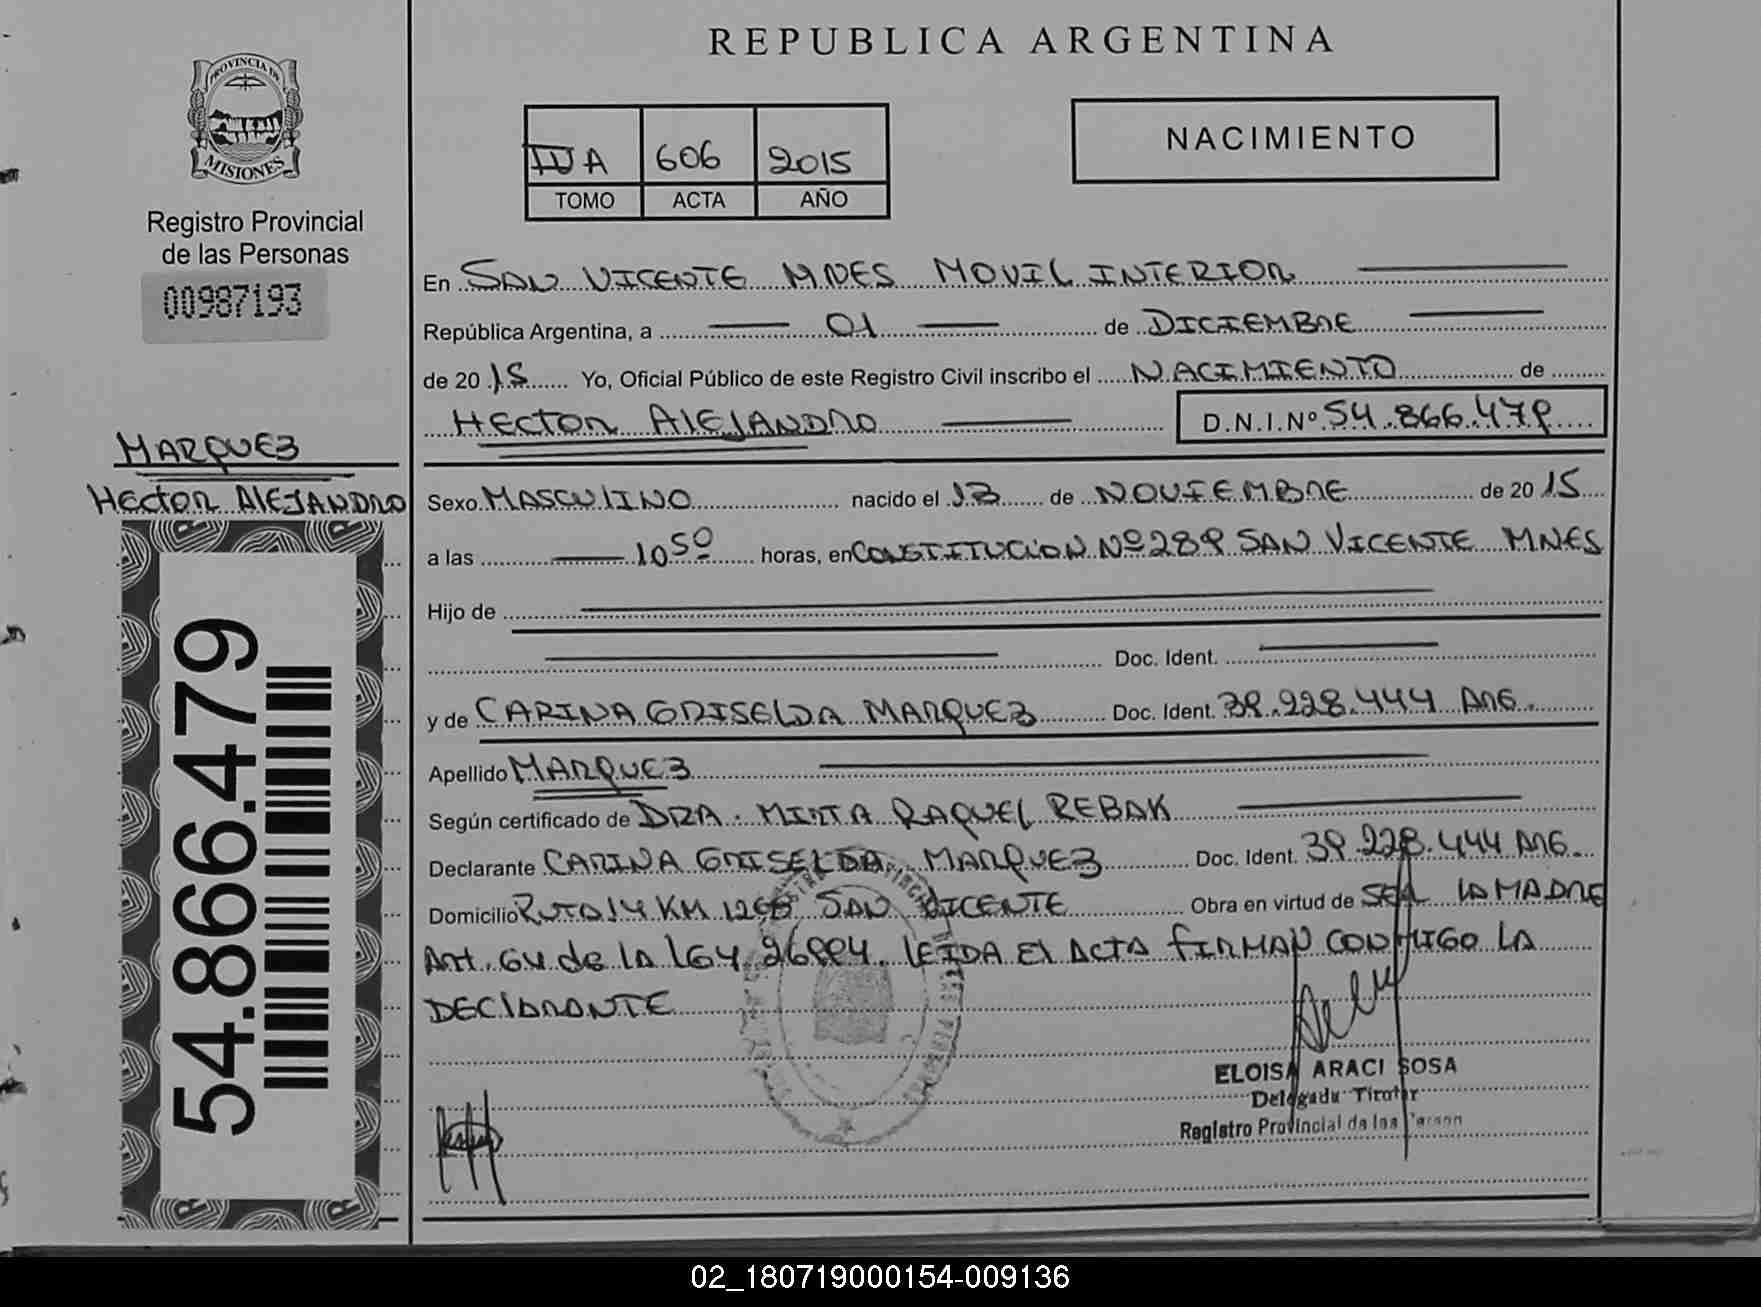 REPUBLICA ARGENTINA
PROVINCIA DE
MISIONES
Registro Provincial
de las Personas
00987193
IVA 606 2015
TOMO ACTA AÑO
NACIMIENTO
En SAN VICENTE MNES MOVIL INTERIOR
República Argentina, a 01 de DICIEMBRE
de 2015 Yo, Oficial Público de este Registro Civil inscribo el NACIMIENTO de
HECTOR ALEJANDRO D.N.I. Nº 54.866.479
MARQUEZ
HECTOR ALEJANDRO
54.866.479
Sexo MASCULINO nacido el 13 de NOVIEMBRE de 2015
a las 10 50 horas, en CONSTITUCION Nº 289 SAN VICENTE MNES
Hijo de
Doc. Ident.
y de CARINA GRISELDA MARQUEZ Doc. Ident. 39.228.444 ARG.
Apellido MARQUEZ
Según certificado de DRA. MIRTA RAQUEL REBAK
Declarante CARINA GRISELDA MARQUEZ Doc. Ident. 39.228.444 ARG.
Domicilio RUTA 14 KM 1268 SAN VICENTE Obra en virtud de SER LA MADRE
Art. 64 de la ley 26994. LEIDA El ACTA FIRMAN CONMIGO LA
DECLARANTE
ELOISA ARACI SOSA
Delegada Titular
Registro Provincial de las Person
02_180719000154-009136